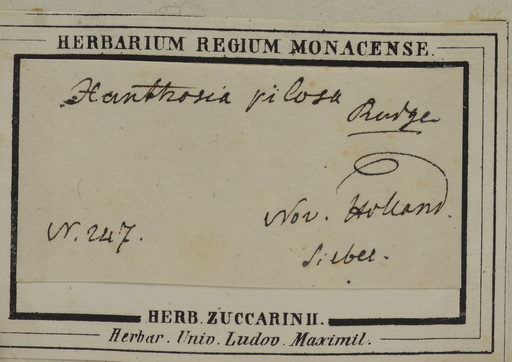 HERBARIUM REGIUM MONACENSE.
Xanthosia pilosa
Rudge
Nov. Holland.
N. 247.
Sieber.
HERB. ZUCCARINII.
Herbar. Univ. Ludov. Maximil.